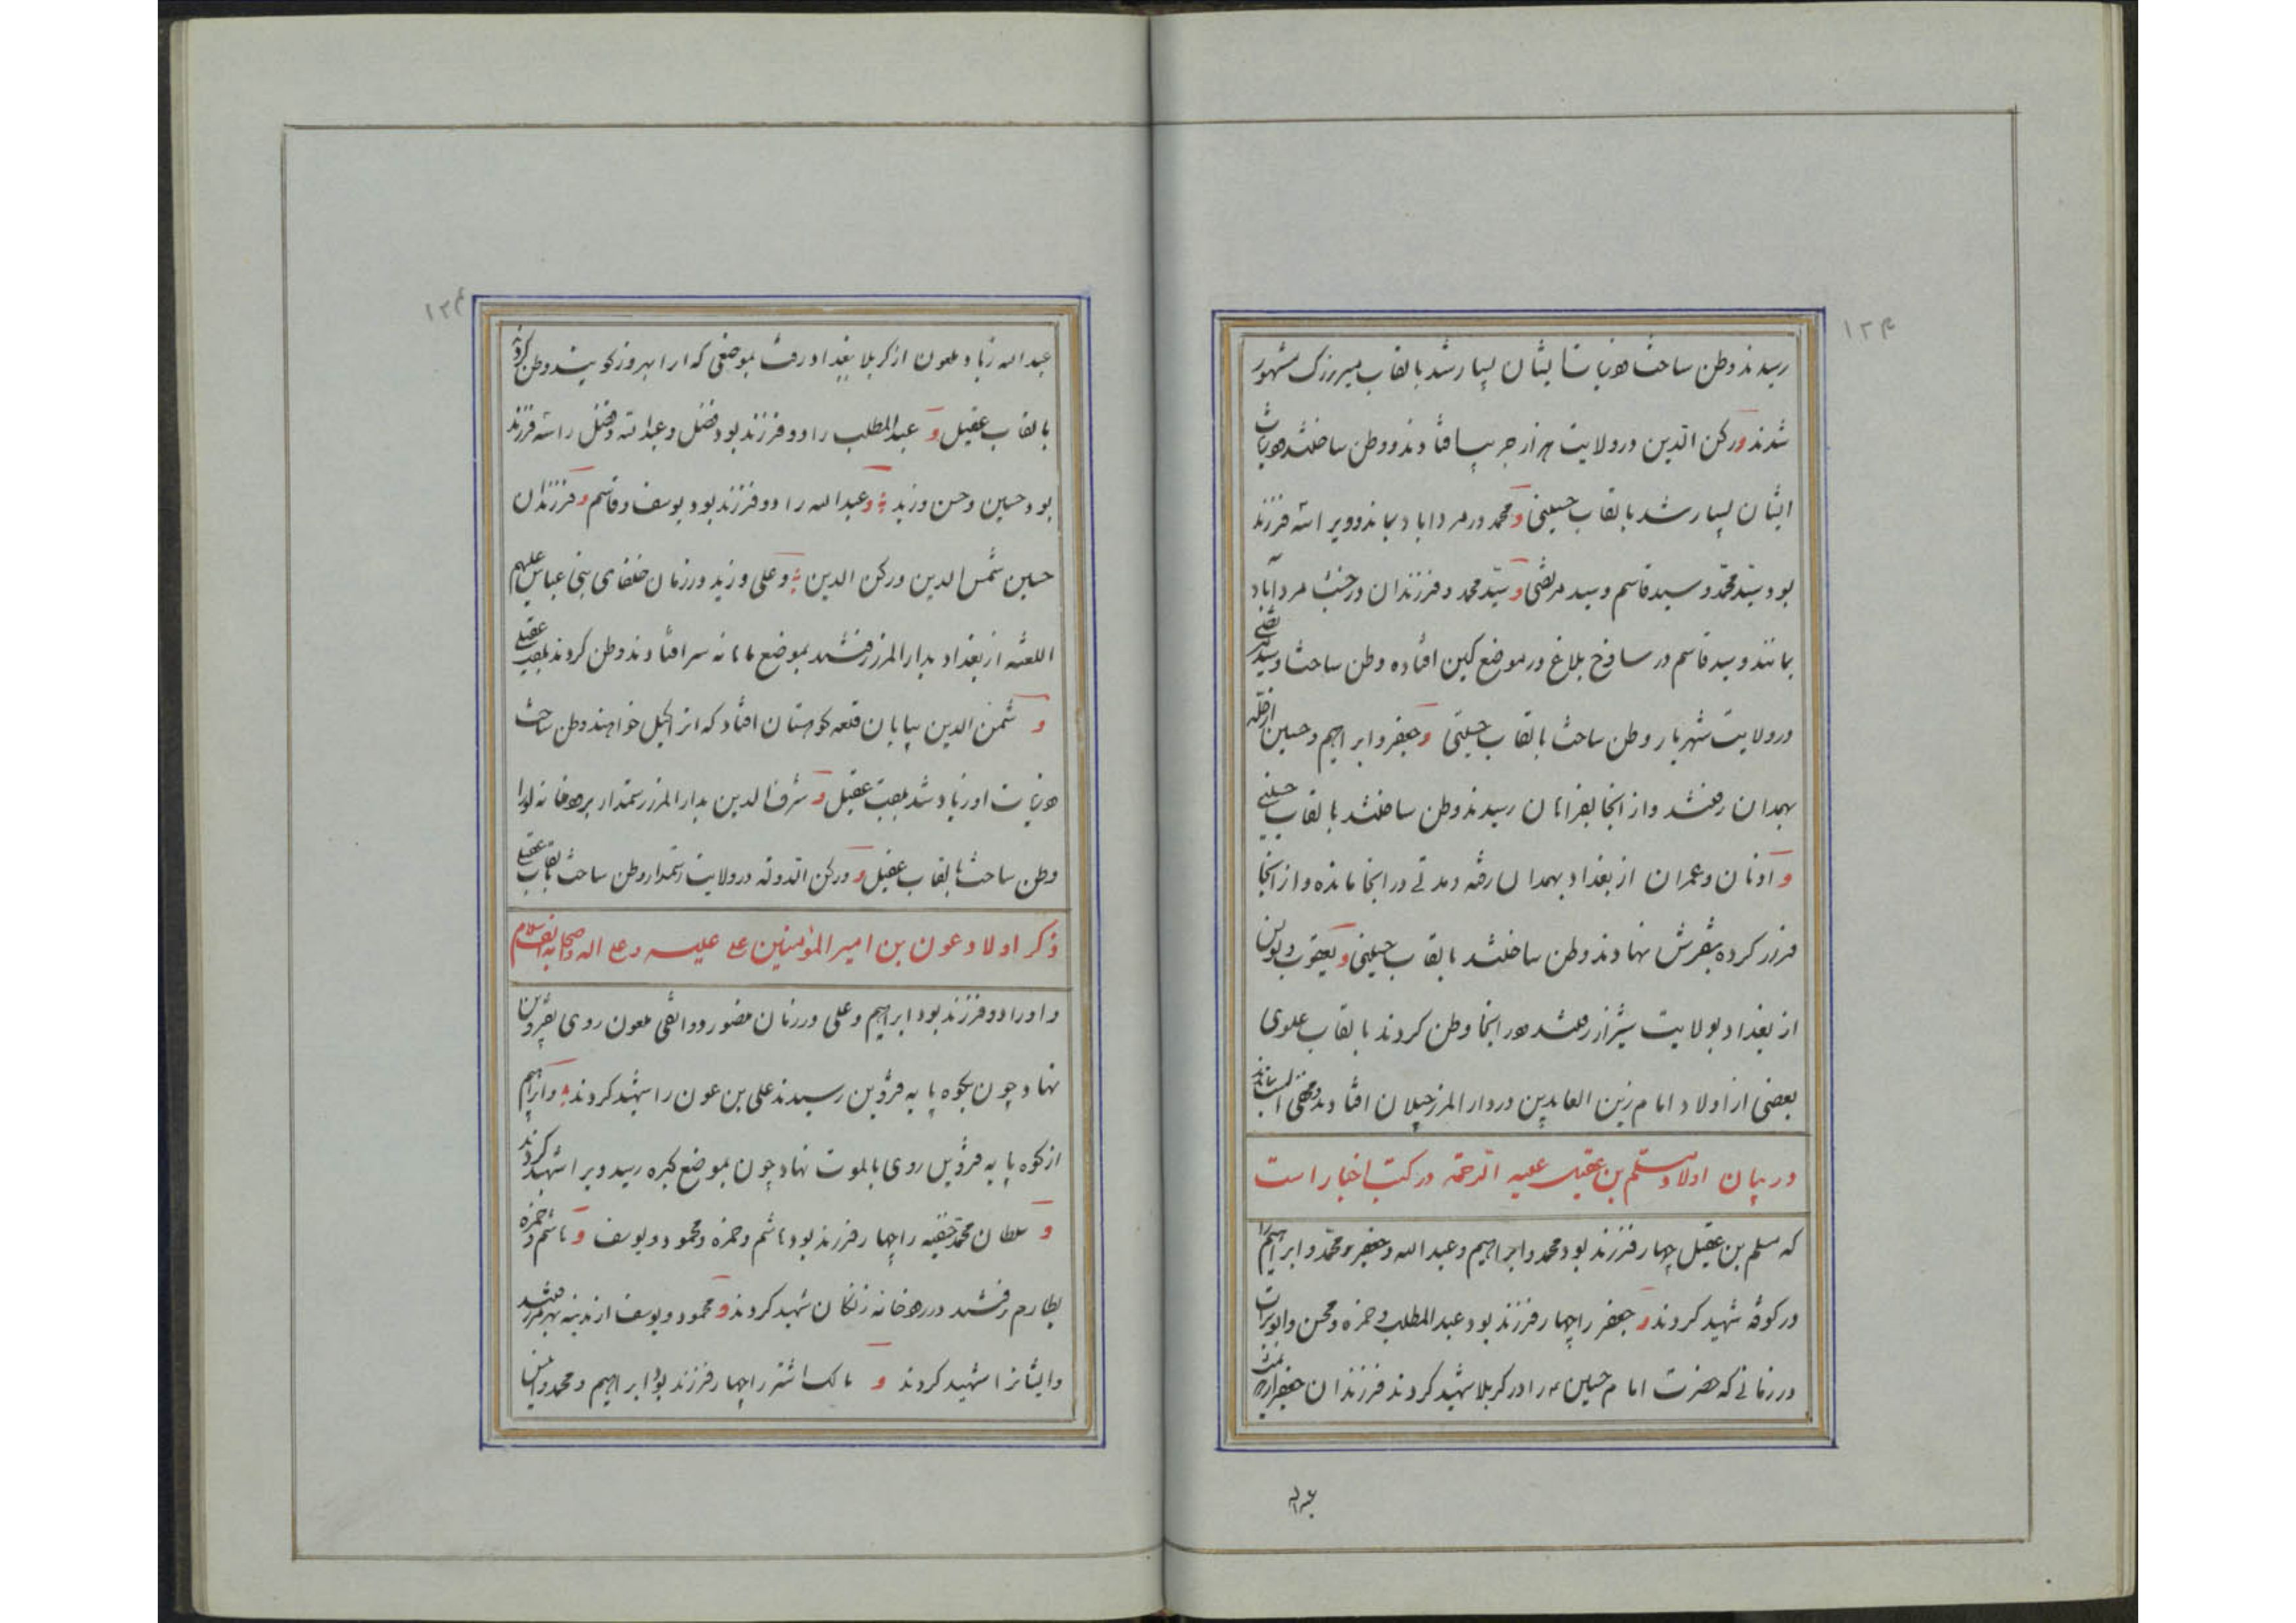 ۱۲۳
رسیدند وطن ساخت و نباتِ ایشان بسیار شد بالقاب میربزرگ مشهور
شدند و رکن الدین در ولایت هزار جریب افتادند و وطن ساختند و نبات
ایشان بسیار شد بالقاب حسینی و محمد در مرداباد بماند و ویرا سه فرزند
بود سید محمد و سید قاسم و سید مرتضی و سید محمد و فرزندان در مرداباد
بماندند و سید قاسم در ساوخ بلاغ در موضع کین افتاده وطن ساخت و سید مرتضی
در ولایت شهریار وطن ساخت بالقاب حسینی و جعفر و ابراهیم و حسین از حله
بهمدان رفتند و از انجا بفراهان رسیدند وطن ساختند بالقاب حسینی
و ادنان و عمران از بغداد بهمدان رفته و مدتی در انجا مانده و از انجا
فرار کرده بتفرش نهادند وطن ساختند بالقاب حسینی و یعقوب و یونس
از بغداد بولایت شیراز رفتند در انجا وطن کردند بالقاب علوی
بعضی از اولاد امام زین العابدین در دار المرز جیلان افتادند
در بیان اولاد مسلم بن عقیل علیه الرحمة در کتب اخبار است
که مسلم بن عقیل چهار فرزند بود محمد و ابراهیم و عبدالله و جعفر و محمد و ابراهیم را
در کوفه شهید کردند و جعفر را چهار فرزند بود عبدالمطلب و حمزه و محسن و ابوتراب
در زمانی که حضرت امام حسین را در کربلا شهید کردند فرزندان جعفر از
۱۲۴
عبدالله زیاد ملعون از کربلا بغداد رفت بموضعی که ارا بهروز کویند وطن کرد
بالقاب عقیل و عبدالمطلب را دو فرزند بود فضل و عبدالله و فضل را سه فرزند
بود حسین و حسن و زید و عبدالله را دو فرزند بود یوسف و قاسم و فرزندان
حسین شمس الدین و رکن الدین و علی و زید در زمان خلفای بنی عباس علیهم
اللعنه از بغداد بدار المرز رفتند بموضع مامانه سر افتادند وطن کردند بلقب عقیلی
و شمس الدین بپایان قلعه کوهستان افتاد که انرا کیل خواهند وطن ساخت
و نبات او زیاد شد بلقب عقیل و شرف الدین بدار المرز رستمدار برودخانه لورا
وطن ساخت بالقاب عقیل و رکن الدوله در ولایت رستمدار وطن ساخت بالقاب عقیلی
ذکر اولاد عون بن امیر المؤمنین علی علیه و علی اله و اصحابه السلام
و اورا دو فرزند بود ابراهیم و علی در زمان منصور دوانقی ملعون روی بقزوین
نهاد چون بکوه پایه قزوین رسیدند علی بن عون را شهید کردند و ابراهیم
از کوه پایه قزوین روی بالموت نهاد چون بموضع کبره رسید ویرا شهید کردند
و سلطان محمد حنفیه را چهار فرزند بود هاشم و حمزه و محمود و یوسف و هاشم و حمزه
بطارم رفتند در رودخانه زنکان شهید کردند و محمود و یوسف از مدینه رفتند
و ایشانرا شهید کردند و مالک اشتر را چهار فرزند بود ابراهیم و محمد و